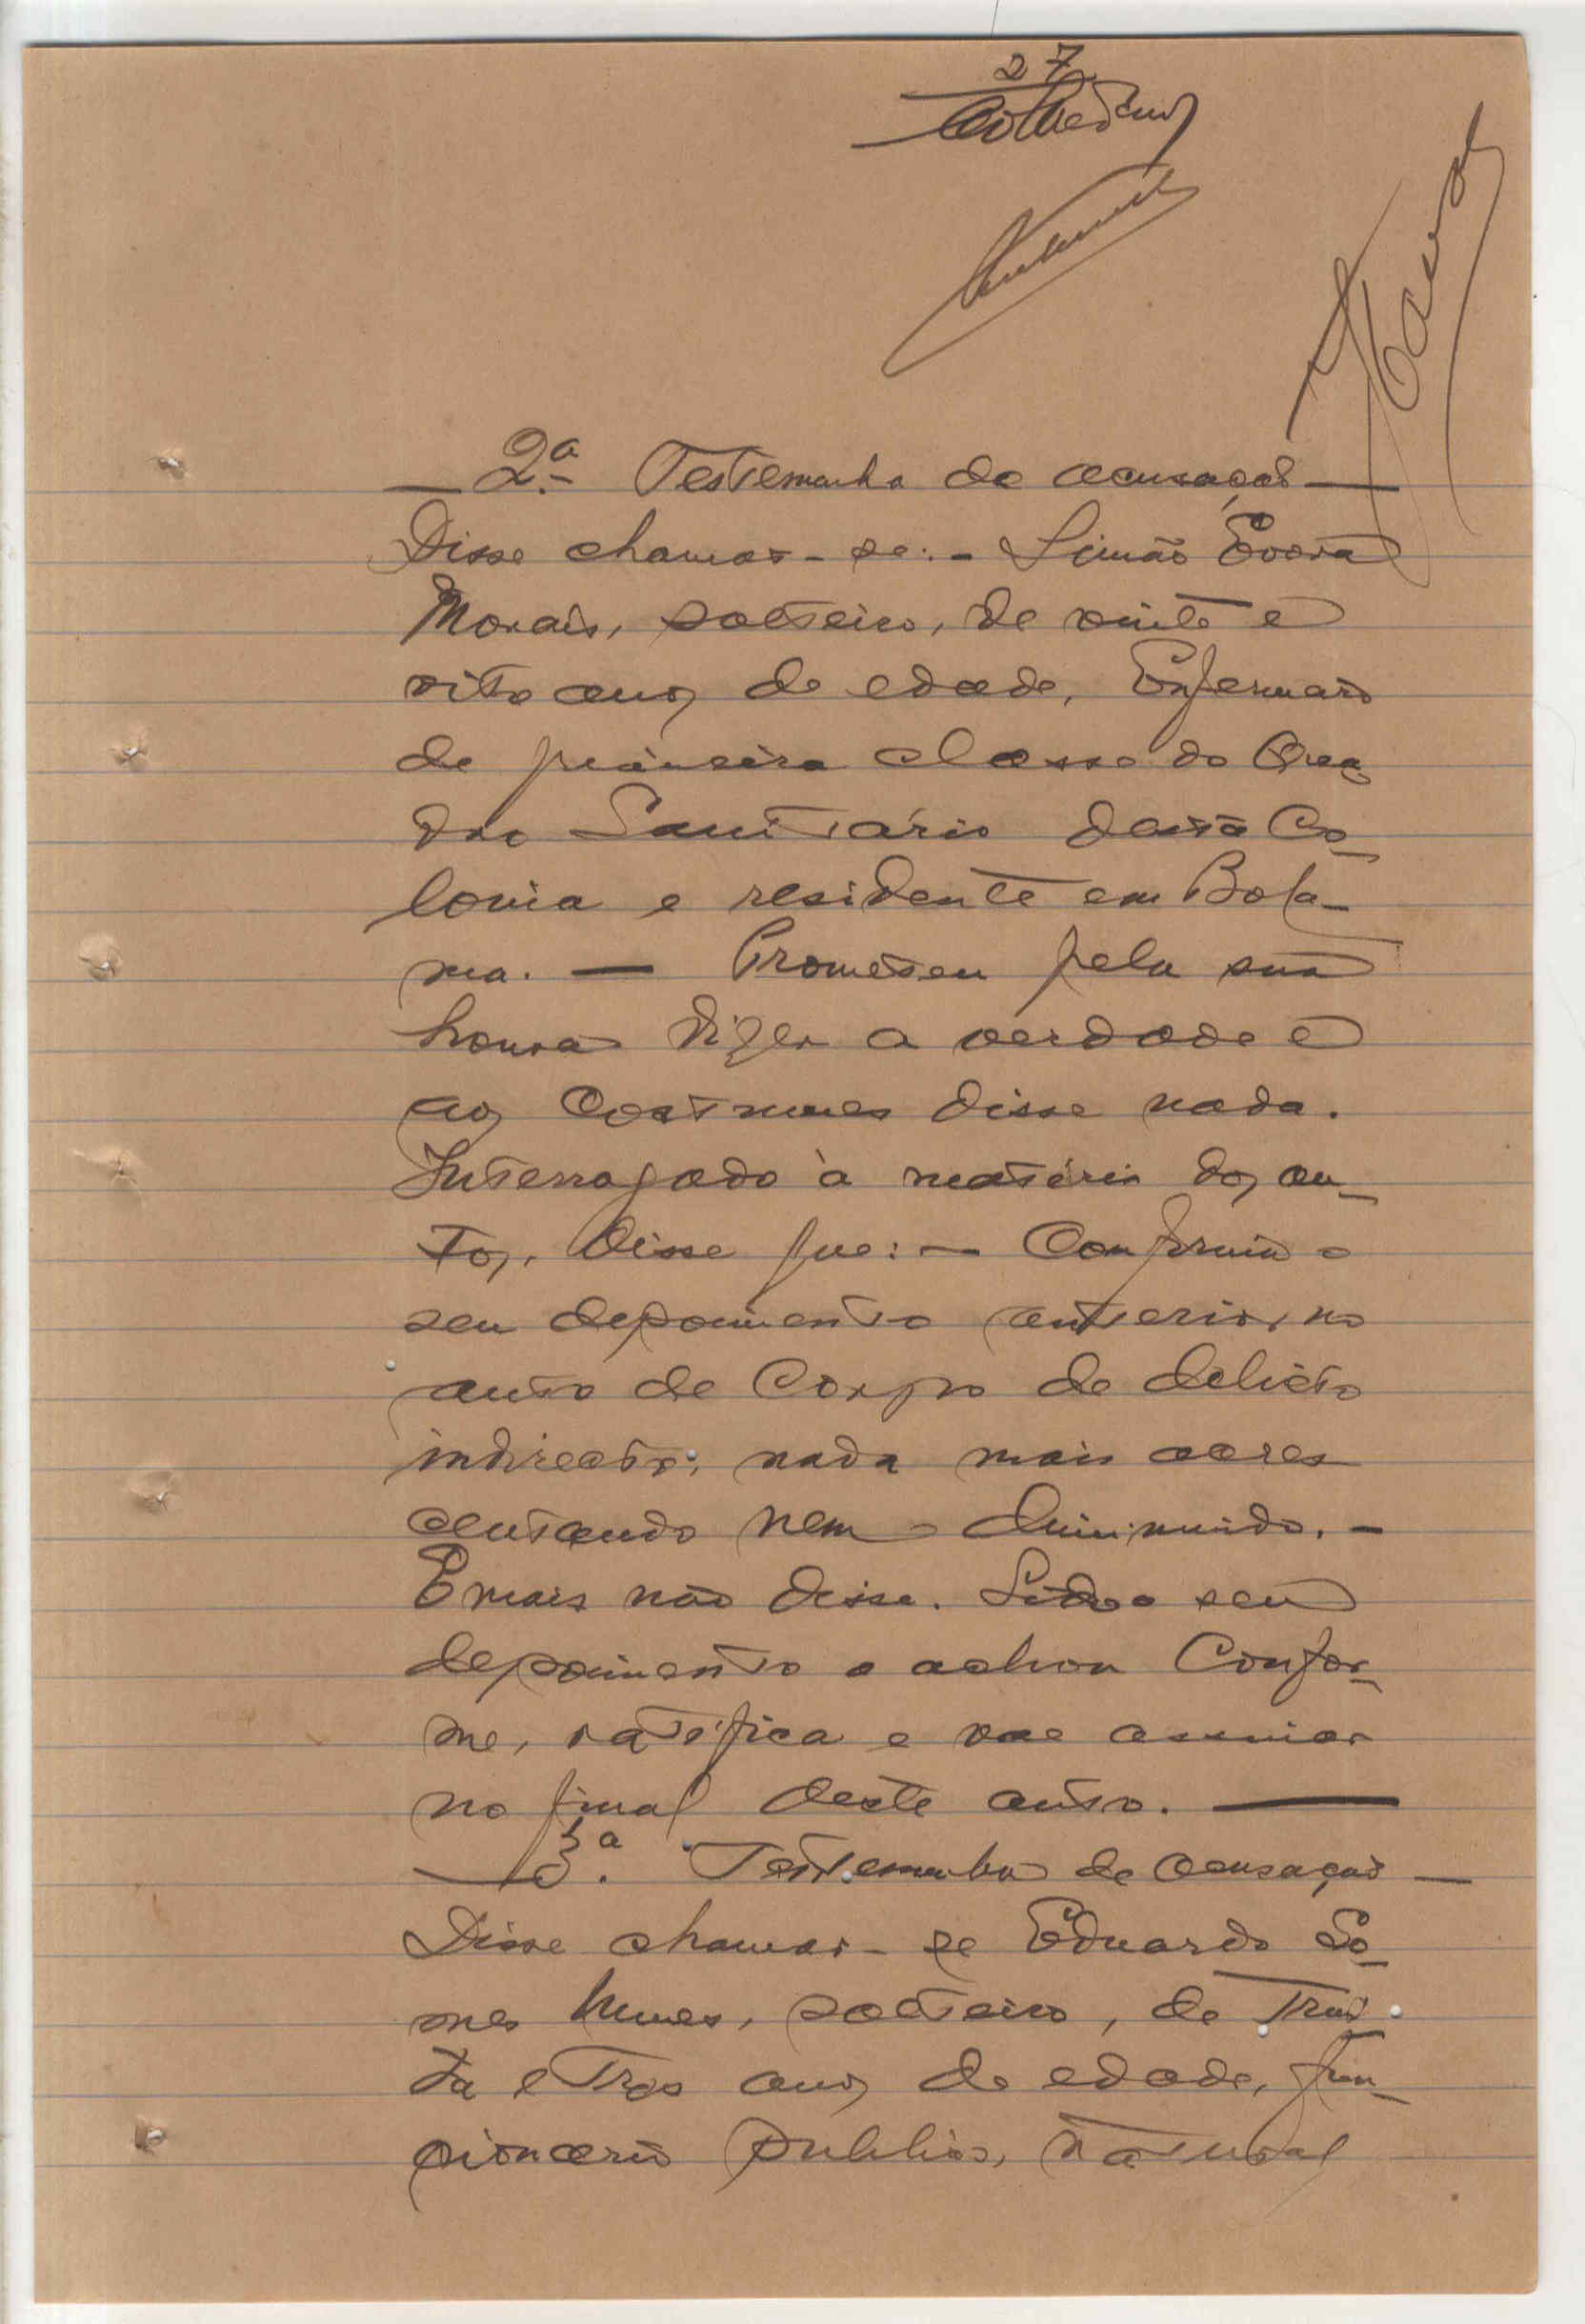 27
— 2.ª Testemunha de acusação —
Disse chamar-se:- Simão Évora
Morais, solteiro, de vinte e
oito anos de edade, Enfermeiro
de primeira classe do Qua-
dro Sanitário desta Co-
lonia e residente em Bola-
ma. — Prometeu pela sua
honra dizer a verdade e
aos costumes disse nada.
Interrogado à matéria dos au-
tos, disse que: — Confirma o
seu depoimento anterior, no
auto de Corpo de delicto
indirecto; nada mais acres
centando nem diminuindo. -
E mais não disse. Lido o seu
depoimento o achou Confor-
me, ratifica e vae assinar
no final deste auto. —
— 3ª. Testemunha de acusação —
Disse chamar-se Eduardo Go-
mes Nunes, solteiro, de Trin-
ta e Tres anos de edade, fun-
cionario publico, natural